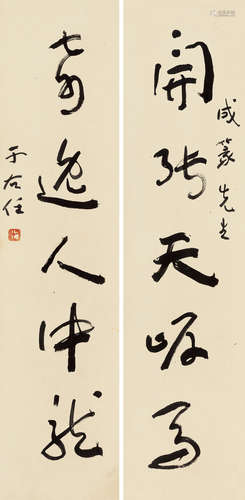 成篆先生
開張天岸馬
奇逸人中龍
于右任